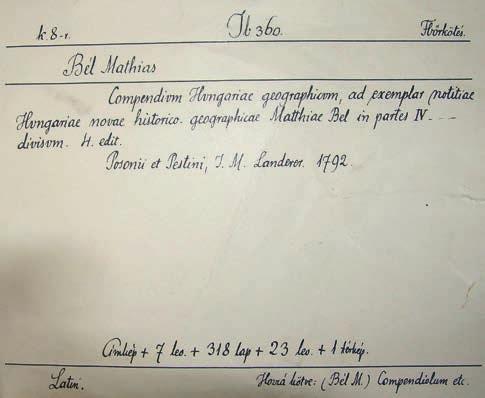 k 8-r. Tb 360. Fbőrkötés.
Bél Mathias
Compendivm Hvngariae geographicvm, ad exemplar notitiae
Hvngariae novae historico. geographicae Matthiae Bel in partes IV - - -
divisvm. 4. edit.
Posonii et Pestini, I. M. Landerer. 1792.
Címkép + 7 lev. + 318 lap + 23 lev. + 1 térkép.
Latin. Hozzá kötve: (Bél M.) Compendiolum etc.